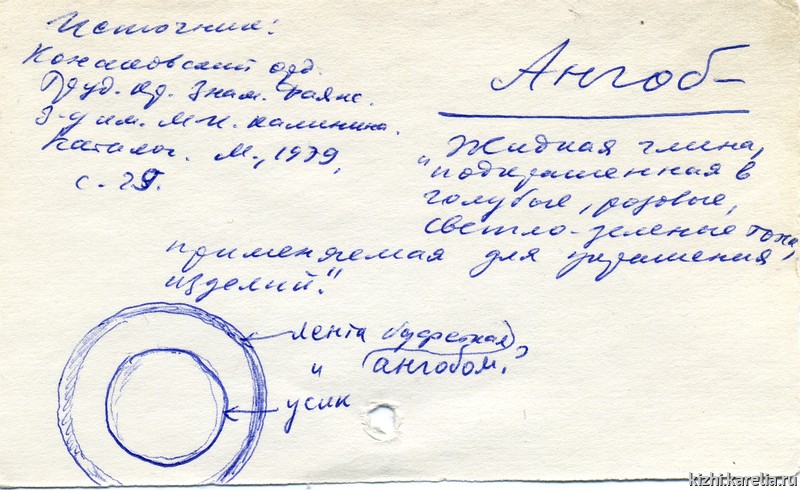 Источник:
Конаковский орд.
Труд. Кр. Знам. Фаянс.
З-д им. М.И. Калинина.
Каталог. М., 1979,
с. 29.
Ангоб –
Жидкая глина,
"подкрашенная в
голубые, розовые,
светло-зеленые тона,
применяемая для украшения
изделий".
лента
и ангобом.
усик
kizhi.karelia.ru